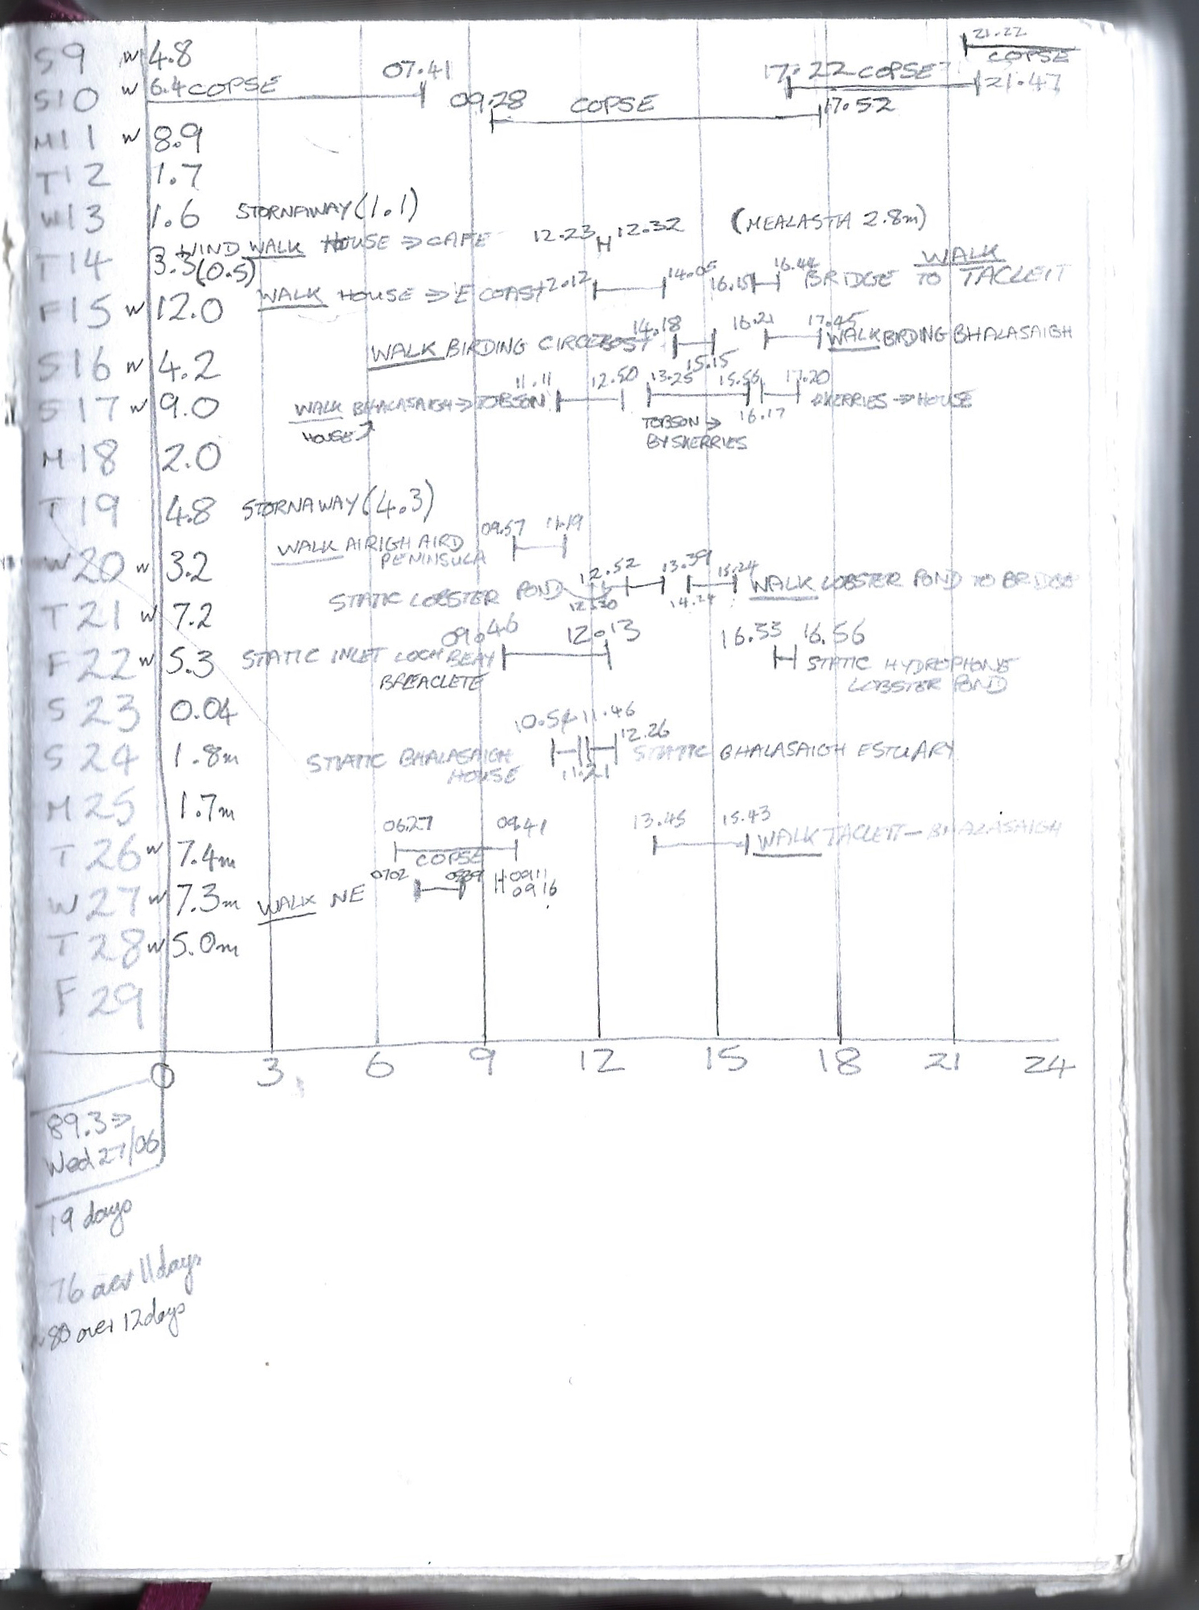 S9 w 4.8 21.22
COPSE
S10 w 6.4 COPSE 07.41 17.22 COPSE 21.47
09.28 COPSE 17.52
M11 w 8.9
T12 1.7
W13 1.6 STORNAWAY (1.1)
WIND WALK HOUSE ⇒ CAFE 12.23 12.32 (MEALASTA 2.8m)
T14 3.3 (0.5)
WALK HOUSE ⇒ E COAST 12.12 14.05 16.15 16.44 BRIDGE WALK TO TACLEIT
F15 w 12.0
WALK BIRDING CIRCEBOST 14.18 15.15 16.21 17.45 WALK BIRDING BHALASAIGH
S16 w 4.2
11.11 12.50 13.25 15.56 17.20
S17 w 9.0 WALK BHALASAIGH ⇒ TOBSON 16.17 SKERRIES ⇒ HOUSE
HOUSE TOBSON ⇒
BY SKERRIES
M18 2.0
T19 4.8 STORNAWAY (4.3)
WALK AIRIGH AIRD 09.57 11.19
PENINSULA
W20 w 3.2
STATIC LOBSTER POND 12.30 12.52 13.39 14.24 15.24 WALK LOBSTER POND TO BRIDGE
T21 w 7.2
09.46 12.13 16.33 16.56
F22 w 5.3 STATIC INLET LOCH BEAY STATIC HYDROPHONE
BREACLETE LOBSTER POND
S23 0.04
10.54 11.46 12.26
S24 1.8m STATIC BHALASAIGH 11.21 STATIC BHALASAIGH ESTUARY
HOUSE
M25 1.7m
06.27 09.41 13.45 15.43
T26 w 7.4m COPSE WALK TACLETT - BHALASAIGH
0702 0839 0911
W27 w 7.3m WALK NE 0916
T28 w 5.0m
F29
0 3 6 9 12 15 18 21 24
89.3 ⇒
Wed 27/06
19 days
76 over 11 days
~80 over 12 days